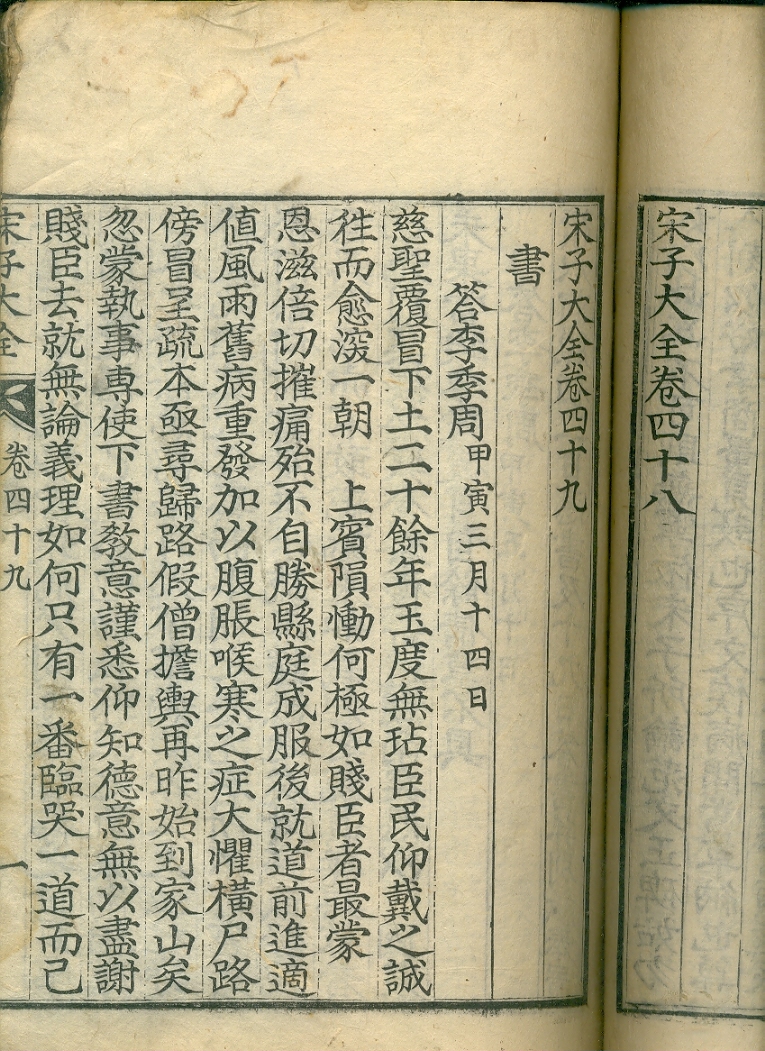 宋子大全卷四十八
宋子大全卷四十九
書
答李季周甲寅三月十四日
慈聖覆冒下土二十餘年玉度無玷臣民仰戴之誠
徃而愈深一朝 上賓隕慟何極如賤臣者最蒙
恩滋倍切摧痛殆不自勝縣庭成服後就道前進適
値風雨舊病重發加以腹脹喉寒之症大懼橫尸路
傍冒呈疏本亟尋歸路假僧擔輿再昨始到家山矣
忽蒙執事専使下書敎意謹悉仰知德意無以盡謝
賤臣去就無論義理如何只有一番臨哭一道而已
宋子大全 卷四十九 一